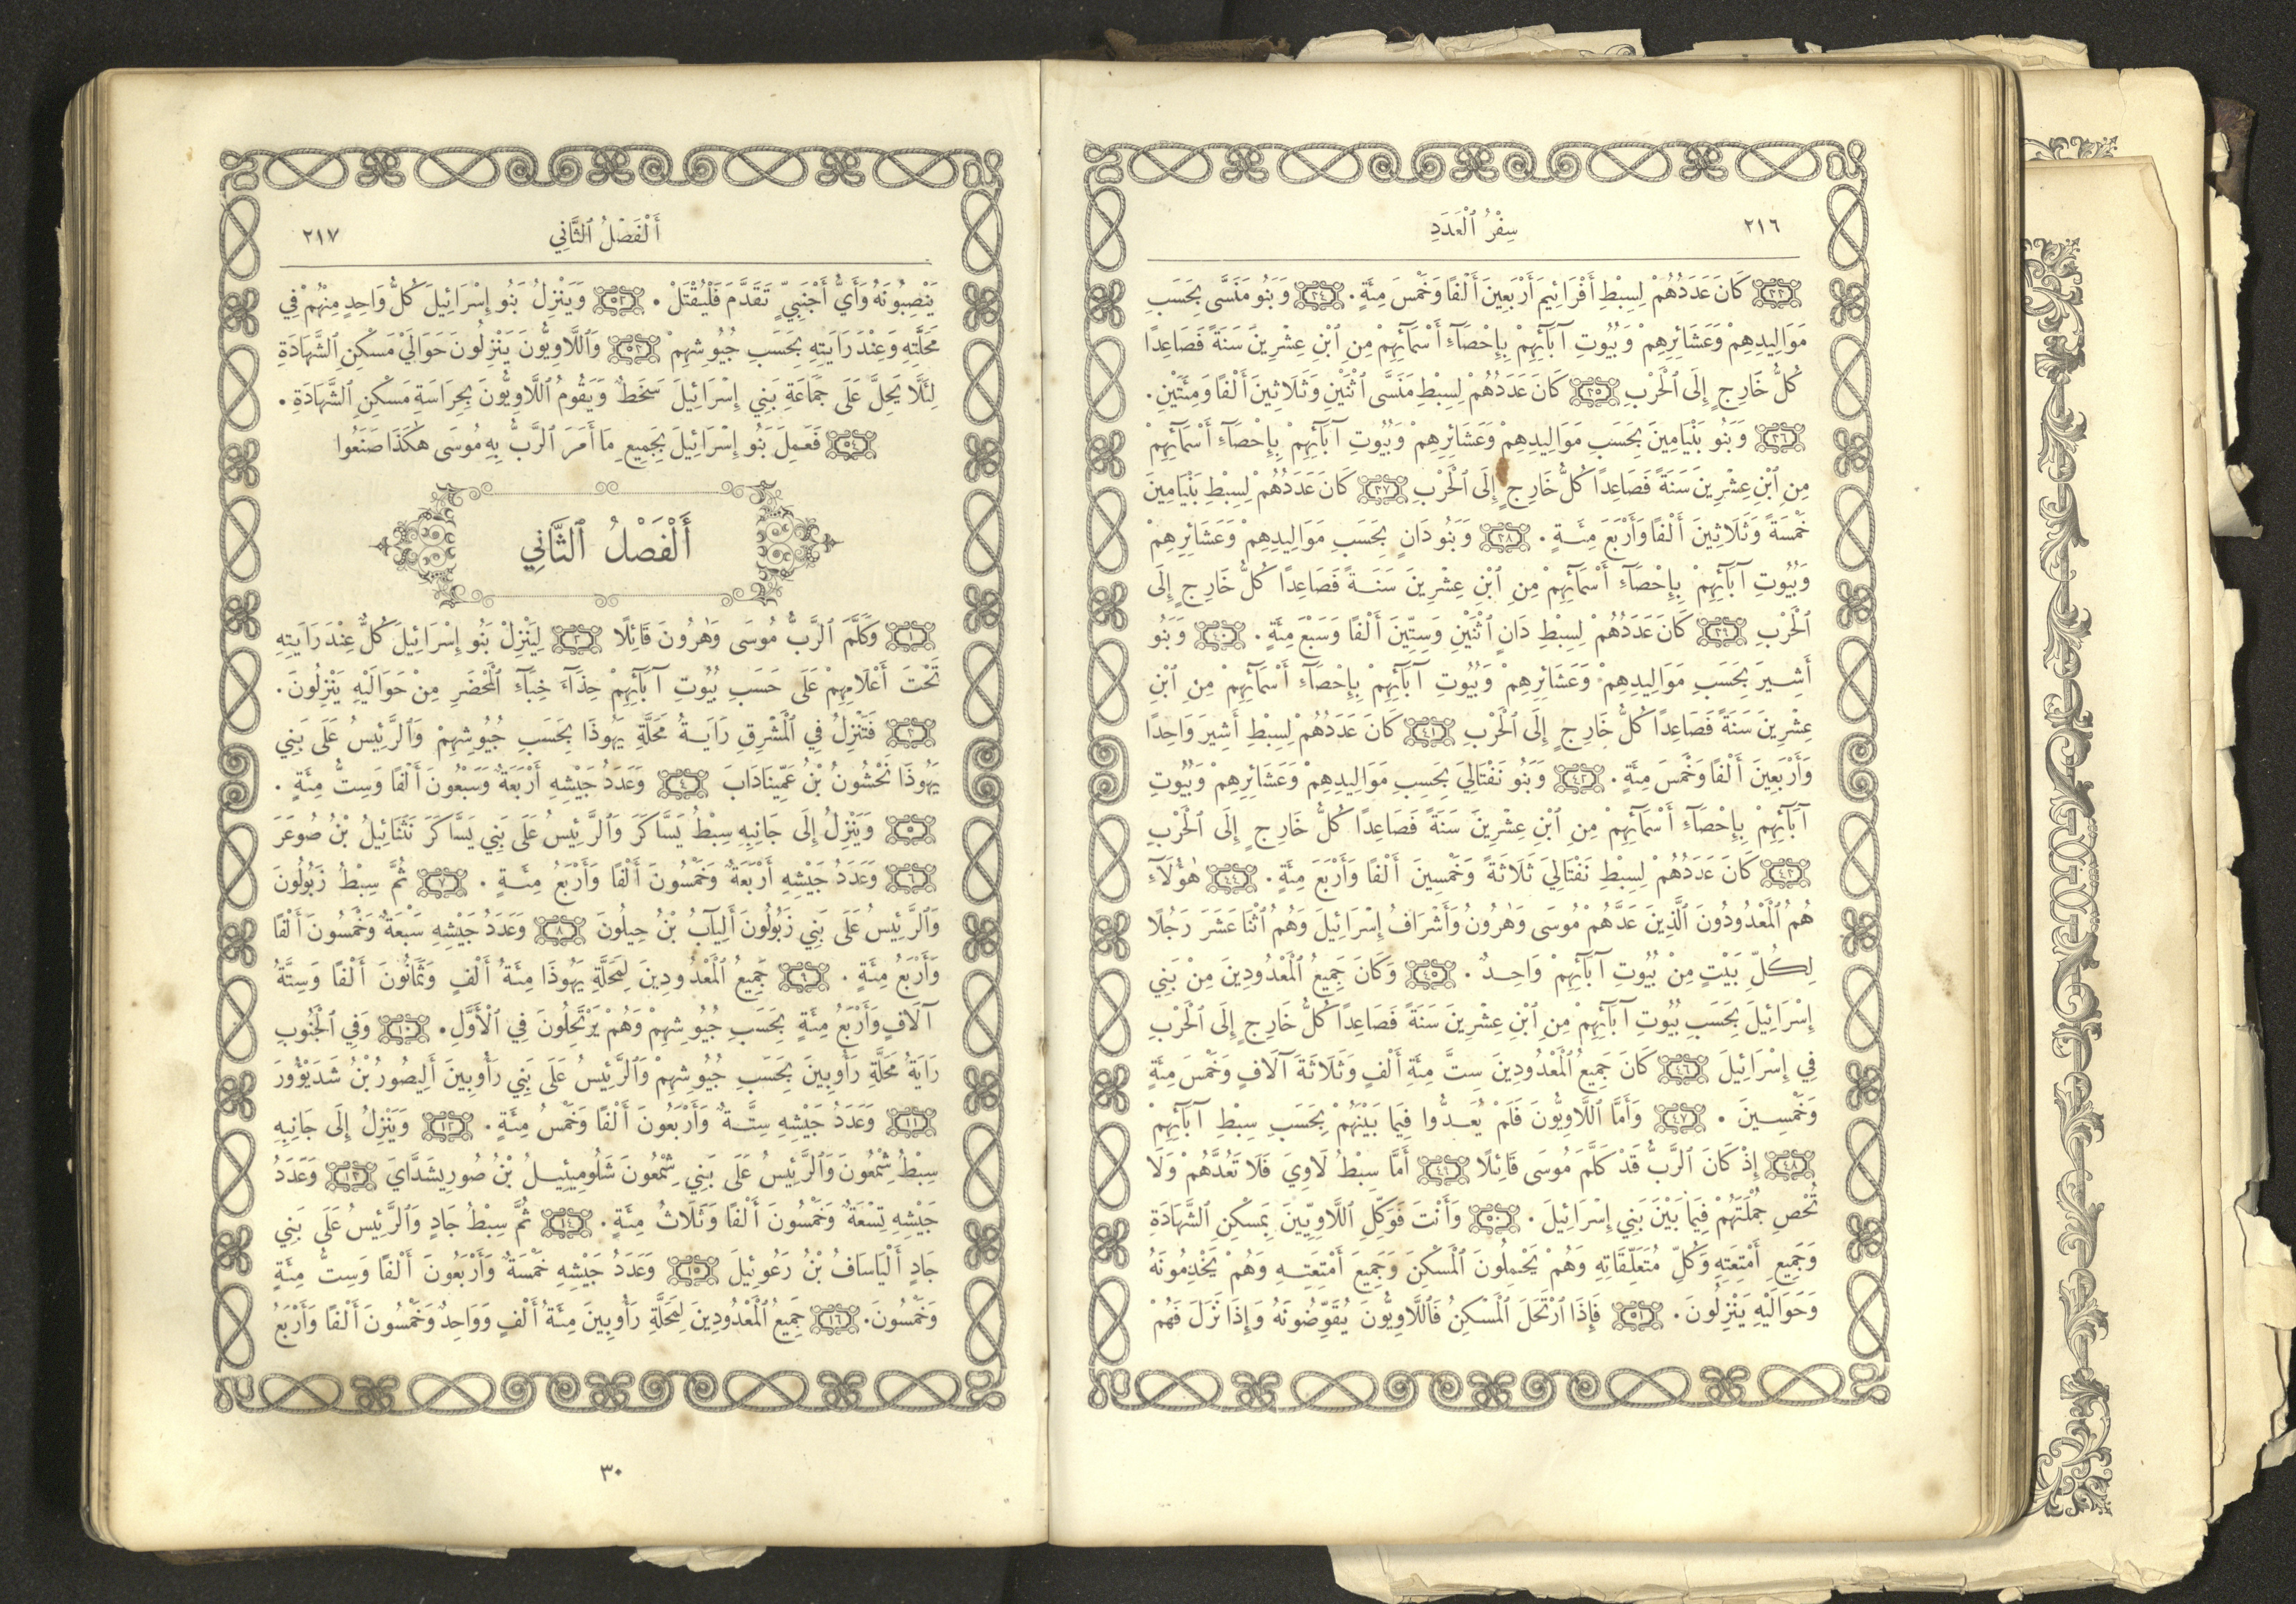 ٢١٦
سِفْرُ ٱلْعَدَدِ
٣٣ كَانَ عَدَدُهُمْ لِسِبْطِ أَفْرَائِيمَ أَرْبَعِينَ أَلْفًا وَخَمْسَ مِئَةٍ. ٣٤ وَبَنُو مَنَسَّى بِحَسَبِ
مَوَالِيدِهِمْ وَعَشَائِرِهِمْ وَبُيُوتِ آبَآئِهِمْ بِإِحْصَآءِ أَسْمَآئِهِمْ مِنِ ٱبْنِ عِشْرِينَ سَنَةً فَصَاعِدًا
كُلُّ خَارِجٍ إِلَى ٱلْحَرْبِ ٣٥ كَانَ عَدَدُهُمْ لِسِبْطِ مَنَسَّى ٱثْنَيْنِ وَثَلَاثِينَ أَلْفًا وَمِئَتَيْنِ.
٣٦ وَبَنُو بَنْيَامِينَ بِحَسَبِ مَوَالِيدِهِمْ وَعَشَائِرِهِمْ وَبُيُوتِ آبَآئِهِمْ بِإِحْصَآءِ أَسْمَآئِهِمْ
مِنِ ٱبْنِ عِشْرِينَ سَنَةً فَصَاعِدًا كُلُّ خَارِجٍ إِلَى ٱلْحَرْبِ ٣٧ كَانَ عَدَدُهُمْ لِسِبْطِ بَنْيَامِينَ
خَمْسَةً وَثَلَاثِينَ أَلْفًا وَأَرْبَعَ مِئَةٍ. ٣٨ وَبَنُو دَانٍ بِحَسَبِ مَوَالِيدِهِمْ وَعَشَائِرِهِمْ
وَبُيُوتِ آبَآئِهِمْ بِإِحْصَآءِ أَسْمَآئِهِمْ مِنِ ٱبْنِ عِشْرِينَ سَنَةً فَصَاعِدًا كُلُّ خَارِجٍ إِلَى
ٱلْحَرْبِ ٣٩ كَانَ عَدَدُهُمْ لِسِبْطِ دَانٍ ٱثْنَيْنِ وَسِتِّينَ أَلْفًا وَسَبْعَ مِئَةٍ. ٤٠ وَبَنُو
أَشِيرَ بِحَسَبِ مَوَالِيدِهِمْ وَعَشَائِرِهِمْ وَبُيُوتِ آبَآئِهِمْ بِإِحْصَآءِ أَسْمَآئِهِمْ مِنِ ٱبْنِ
عِشْرِينَ سَنَةً فَصَاعِدًا كُلُّ خَارِجٍ إِلَى ٱلْحَرْبِ ٤١ كَانَ عَدَدُهُمْ لِسِبْطِ أَشِيرَ وَاحِدًا
وَأَرْبَعِينَ أَلْفًا وَخَمْسَ مِئَةٍ. ٤٢ وَبَنُو نَفْتَالِيَ بِحَسَبِ مَوَالِيدِهِمْ وَعَشَائِرِهِمْ وَبُيُوتِ
آبَآئِهِمْ بِإِحْصَآءِ أَسْمَآئِهِمْ مِنِ ٱبْنِ عِشْرِينَ سَنَةً فَصَاعِدًا كُلُّ خَارِجٍ إِلَى ٱلْحَرْبِ
٤٣ كَانَ عَدَدُهُمْ لِسِبْطِ نَفْتَالِيَ ثَلَاثَةً وَخَمْسِينَ أَلْفًا وَأَرْبَعَ مِئَةٍ. ٤٤ هٰؤُلَآءِ
هُمُ ٱلْمَعْدُودُونَ ٱلَّذِينَ عَدَّهُمْ مُوسَى وَهٰرُونُ وَأَشْرَافُ إِسْرَائِيلَ وَهُمُ ٱثْنَا عَشَرَ رَجُلًا
لِكُلِّ بَيْتٍ مِنْ بُيُوتِ آبَآئِهِمْ وَاحِدٌ. ٤٥ وَكَانَ جَمِيعُ ٱلْمَعْدُودِينَ مِنْ بَنِي
إِسْرَائِيلَ بِحَسَبِ بُيُوتِ آبَآئِهِمْ مِنِ ٱبْنِ عِشْرِينَ سَنَةً فَصَاعِدًا كُلُّ خَارِجٍ إِلَى ٱلْحَرْبِ
فِي إِسْرَائِيلَ ٤٦ كَانَ جَمِيعُ ٱلْمَعْدُودِينَ سِتَّ مِئَةِ أَلْفٍ وَثَلَاثَةَ آلَافٍ وَخَمْسَ مِئَةٍ
وَخَمْسِينَ. ٤٧ وَأَمَّا ٱللَّاوِيُّونَ فَلَمْ يُعَدُّوا فِيمَا بَيْنَهُمْ بِحَسَبِ سِبْطِ آبَآئِهِمْ
٤٨ إِذْ كَانَ ٱلرَّبُّ قَدْ كَلَّمَ مُوسَى قَائِلًا ٤٩ أَمَّا سِبْطُ لَاوِيَ فَلَا تَعُدَّهُمْ وَلَا
تُحْصِ جُمْلَتَهُمْ فِيمَا بَيْنَ بَنِي إِسْرَائِيلَ. ٥٠ وَأَنْتَ فَوَكِّلِ ٱللَّاوِيِّينَ بِمَسْكِنِ ٱلشَّهَادَةِ
وَجَمِيعِ أَمْتِعَتِهِ وَكُلِّ مُتَعَلِّقَاتِهِ وَهُمْ يَحْمِلُونَ ٱلْمَسْكِنَ وَجَمِيعَ أَمْتِعَتِهِ وَهُمْ يَخْدِمُونَهُ
وَحَوَالَيْهِ يَنْزِلُونَ. ٥١ فَإِذَا ٱرْتَحَلَ ٱلْمَسْكِنُ فَٱللَّاوِيُّونَ يُقَوِّضُونَهُ وَإِذَا نَزَلَ فَهُمْ
أَلْفَصْلُ ٱلثَّانِي
٢١٧
يَنْصِبُونَهُ وَأَيُّ أَجْنَبِيٍّ تَقَدَّمَ فَلْيُقْتَلْ. ٥٢ وَيَنْزِلُ بَنُو إِسْرَائِيلَ كُلُّ وَاحِدٍ مِنْهُمْ فِي
مَحَلَّتِهِ وَعِنْدَ رَايَتِهِ بِحَسَبِ جُيُوشِهِمْ ٥٣ وَٱللَّاوِيُّونَ يَنْزِلُونَ حَوَالَيْ مَسْكِنِ ٱلشَّهَادَةِ
لِئَلَّا يَحِلَّ عَلَى جَمَاعَةِ بَنِي إِسْرَائِيلَ سَخَطٌ وَيَقُومُ ٱللَّاوِيُّونَ بِحِرَاسَةِ مَسْكِنِ ٱلشَّهَادَةِ.
٥٤ فَعَمِلَ بَنُو إِسْرَائِيلَ بِجَمِيعِ مَا أَمَرَ ٱلرَّبُّ بِهِ مُوسَى هٰكَذَا صَنَعُوا
أَلْفَصْلُ ٱلثَّانِي
١ وَكَلَّمَ ٱلرَّبُّ مُوسَى وَهٰرُونَ قَائِلًا ٢ لِيَنْزِلْ بَنُو إِسْرَائِيلَ كُلٌّ عِنْدَ رَايَتِهِ
تَحْتَ أَعْلَامِهِمْ عَلَى حَسَبِ بُيُوتِ آبَآئِهِمْ حِذَآءَ خِبَآءِ ٱلْمَحْضَرِ مِنْ حَوَالَيْهِ يَنْزِلُونَ.
٣ فَتَنْزِلُ فِي ٱلْمَشْرِقِ رَايَةُ مَحَلَّةِ يَهُوذَا بِحَسَبِ جُيُوشِهِمْ وَٱلرَّئِيسُ عَلَى بَنِي
يَهُوذَا نَحْشُونُ بْنُ عَمِّينَادَابَ ٤ وَعَدَدُ جَيْشِهِ أَرْبَعَةٌ وَسَبْعُونَ أَلْفًا وَسِتُّ مِئَةٍ.
٥ وَيَنْزِلُ إِلَى جَانِبِهِ سِبْطُ يَسَّاكَرَ وَٱلرَّئِيسُ عَلَى بَنِي يَسَّاكَرَ نَتَنَائِيلُ بْنُ صُوعَرَ
٦ وَعَدَدُ جَيْشِهِ أَرْبَعَةٌ وَخَمْسُونَ أَلْفًا وَأَرْبَعُ مِئَةٍ. ٧ ثُمَّ سِبْطُ زَبُولُونَ
وَٱلرَّئِيسُ عَلَى بَنِي زَبُولُونَ أَلِيآبُ بْنُ حِيلُونَ ٨ وَعَدَدُ جَيْشِهِ سَبْعَةٌ وَخَمْسُونَ أَلْفًا
وَأَرْبَعُ مِئَةٍ. ٩ جَمِيعُ ٱلْمَعْدُودِينَ لِمَحَلَّةِ يَهُوذَا مِئَةُ أَلْفٍ وَثَمَانُونَ أَلْفًا وَسِتَّةُ
آلَافٍ وَأَرْبَعُ مِئَةٍ بِحَسَبِ جُيُوشِهِمْ وَهُمْ يَرْتَحِلُونَ فِي ٱلْأَوَّلِ. ١٠ وَفِي ٱلْجَنُوبِ
رَايَةُ مَحَلَّةِ رَأُوبِينَ بِحَسَبِ جُيُوشِهِمْ وَٱلرَّئِيسُ عَلَى بَنِي رَأُوبِينَ أَلِيصُورُ بْنُ شَدَيْؤُورَ
١١ وَعَدَدُ جَيْشِهِ سِتَّةٌ وَأَرْبَعُونَ أَلْفًا وَخَمْسُ مِئَةٍ. ١٢ وَيَنْزِلُ إِلَى جَانِبِهِ
سِبْطُ شِمْعُونَ وَٱلرَّئِيسُ عَلَى بَنِي شِمْعُونَ شَلُومِيئِيلُ بْنُ صُورِيشَدَّايَ ١٣ وَعَدَدُ
جَيْشِهِ تِسْعَةٌ وَخَمْسُونَ أَلْفًا وَثَلَاثُ مِئَةٍ. ١٤ ثُمَّ سِبْطُ جَادٍ وَٱلرَّئِيسُ عَلَى بَنِي
جَادٍ أَلْيَاسَافُ بْنُ رَعُوئِيلَ ١٥ وَعَدَدُ جَيْشِهِ خَمْسَةٌ وَأَرْبَعُونَ أَلْفًا وَسِتُّ مِئَةٍ
وَخَمْسُونَ. ١٦ جَمِيعُ ٱلْمَعْدُودِينَ لِمَحَلَّةِ رَأُوبِينَ مِئَةُ أَلْفٍ وَوَاحِدٌ وَخَمْسُونَ أَلْفًا وَأَرْبَعُ
٣٠